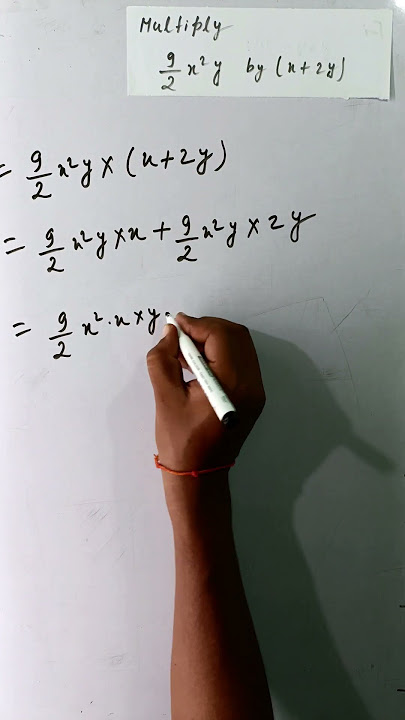 Multiply
9/2 x² y by (x+2y)
= 9/2 x²y × (x+2y)
= 9/2 x²y × x + 9/2 x²y × 2y
= 9/2 x² · x × y